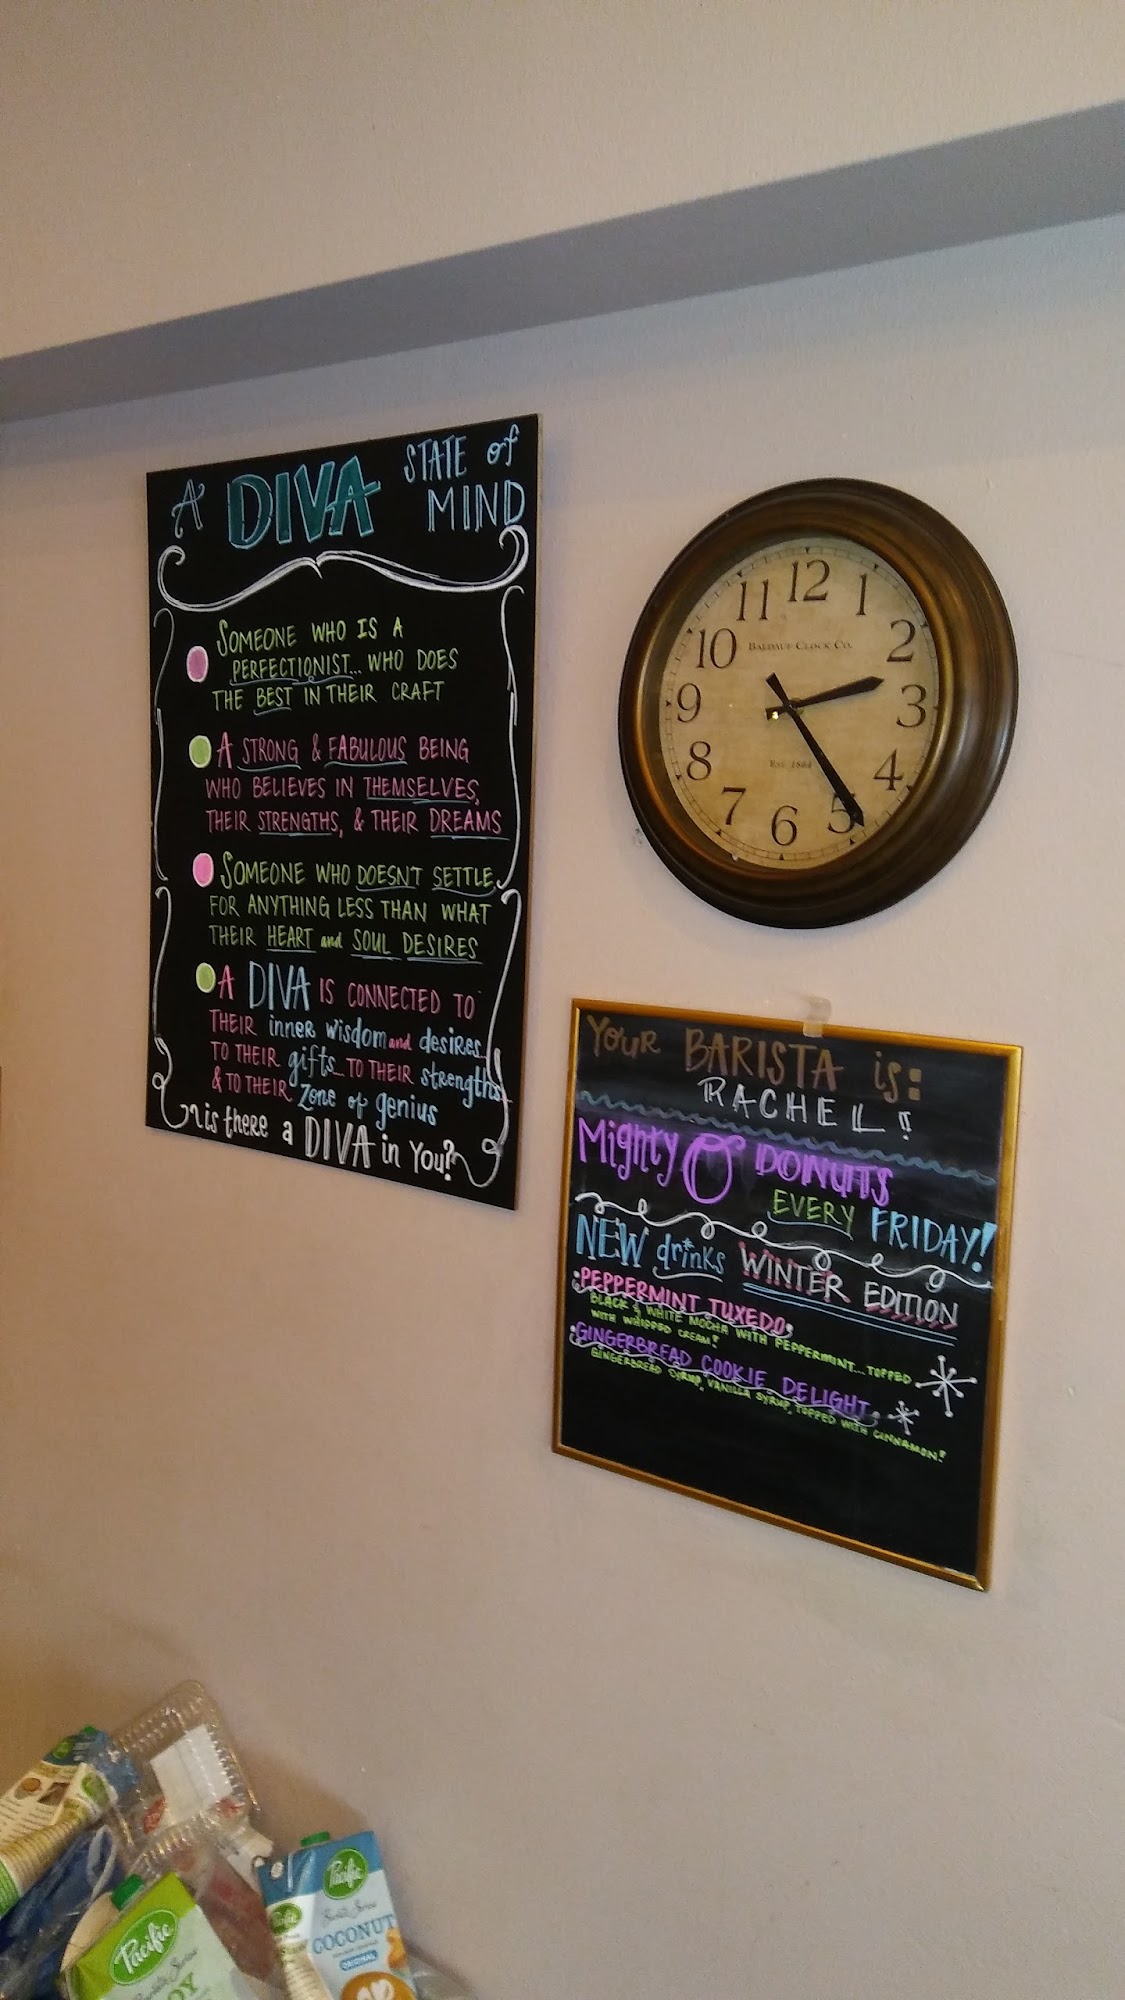 A DIVA STATE of MIND
SOMEONE WHO IS A
PERFECTIONIST... WHO DOES
THE BEST IN THEIR CRAFT
A STRONG & FABULOUS BEING
WHO BELIEVES IN THEMSELVES,
THEIR STRENGTHS, & THEIR DREAMS
SOMEONE WHO DOESN'T SETTLE
FOR ANYTHING LESS THAN WHAT
THEIR HEART and SOUL DESIRES
A DIVA IS CONNECTED TO
THEIR inner wisdom and desires...
TO THEIR gifts... TO THEIR strengths...
& TO THEIR zone of genius
is there a DIVA in you?
12
1
2
3
4
5
6
7
8
9
10
11
BALDAUF CLOCK CO.
Est. 1884
YOUR BARISTA is:
RACHEL!
Mighty O DONUTS
EVERY FRIDAY!
NEW drinks WINTER EDITION
PEPPERMINT TUXEDO
BLACK & WHITE MOCHA WITH PEPPERMINT... TOPPED
WITH WHIPPED CREAM!
GINGERBREAD COOKIE DELIGHT
GINGERBREAD SYRUP, VANILLA SYRUP, TOPPED WITH CINNAMON!
Pacific
Barista Series
Pacific
Barista Series
COCONUT
ORIGINAL